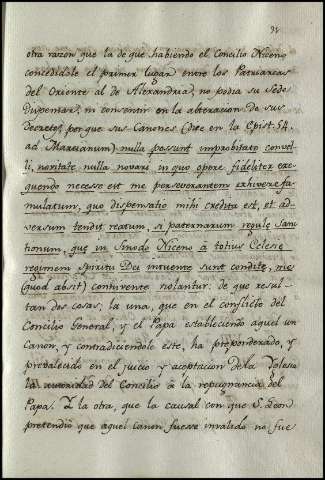 otra razón que la de que habiendo el Concilio Niceno
concedidole el primer lugar entre los Patriarcas
del Oriente al de Alexandria, no podia su Sede
Dispensar, ni consentir en la alteracion de sus
Decretos, por que sus Canones (dice en la Epist. 54.
ad Marcianum) nulla possunt improbitate convel-
li, novitate nulla novari in quo opere fideliter exe-
quendo necesse est me perseverantem exhivere fa-
mulatum, quo dispensatio mihi credita est, et ad-
versum tendit reatum, si paternarum regule sanc-
tionum, que in Sinodo Niceno à totius Eclesie
regimem Spiritu Dei intuente sunt condite, me
(quod absit) connivente violantur: de que resul-
tan dos cosas; la una, que en el conflicto del
Concilio General, y el Papa estableciendo aquel un
Canon, y contradiciendole este, ha preponderado, y
prevalecido en el juicio y aceptacion de la Yglesia
la autoridad del Concilio à la repugnancia del
Papa. Y la otra, que la causal con que S. Leon
pretendio que aquel canon fuesse invalido no fue